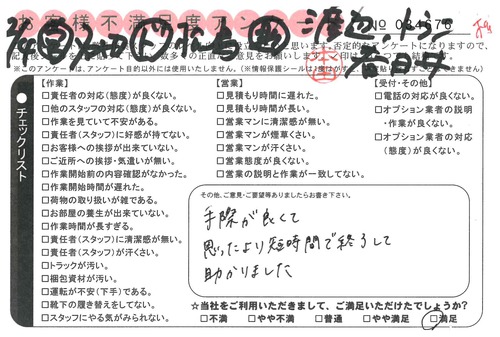 お客様不満足度アンケート
№ 024676
※このアンケートは、アンケート目的以外には使用いたしません。
チェックリスト
【作業】
□責任者の対応(態度)が良くない。
□他のスタッフの対応(態度)が良くない。
□作業を見ていて不安がある。
□責任者(スタッフ)に好感が持てない。
□お客様への挨拶が出来ていない。
□ご近所への挨拶・気遣いが無い。
□作業開始前の内容確認がなかった。
□作業開始時間が遅れた。
□荷物の取り扱いが雑である。
□お部屋の養生が出来ていない。
□作業時間が長すぎる。
□責任者(スタッフ)に清潔感が無い。
□責任者(スタッフ)が汗くさい。
□トラックが汚い。
□梱包資材が汚い。
□運転が不安(下手)である。
□靴下の履き替えをしてない。
□スタッフにやる気がみられない。
【営業】
□見積もり時間に遅れた。
□見積もり時間が長い。
□営業マンに清潔感が無い。
□営業マンが煙草くさい。
□営業マンが汗くさい。
□営業態度が良くない。
□営業の説明と作業が一致してない。
【受付・その他】
□電話の対応が良くない。
□オプション業者の説明
・作業が良くない。
□オプション業者の対応
(態度)が良くない。
その他、ご意見・ご要望等ありましたらお書き下さい。
手際が良くて
思ったより短時間で終了して
助かりました
☆当社をご利用いただきまして、ご満足いただけたでしょうか?
□不満 □やや不満 □普通 □やや満足 □満足